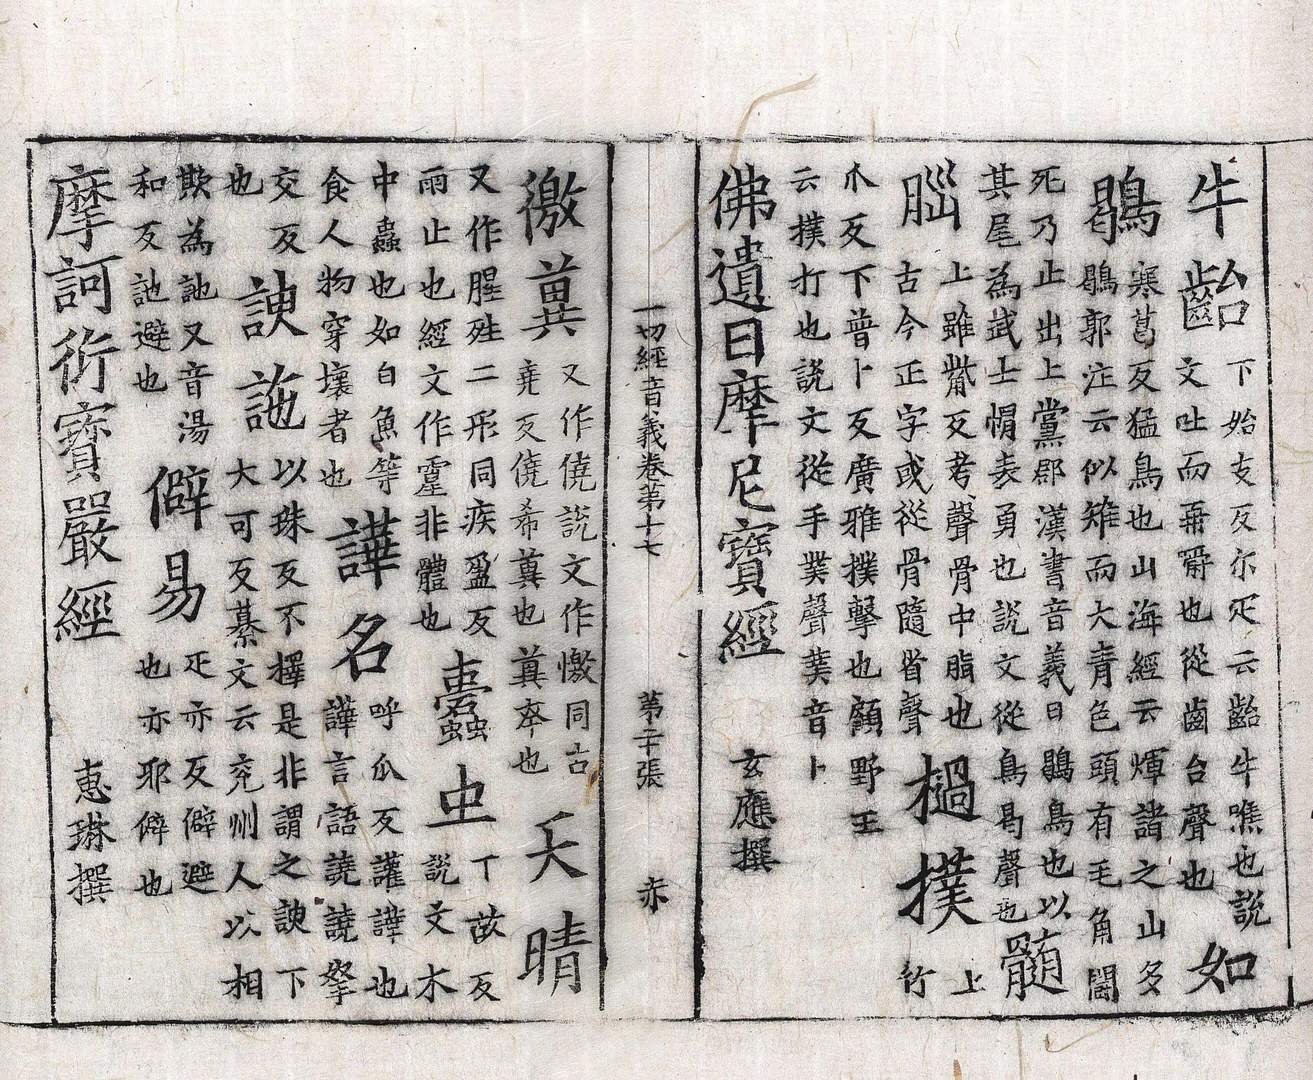 牛齝下始支反尔疋云齝牛噍也說
文吐而再嚼也從齒台聲也如
鶡寒葛反猛鳥也山海經云煇諸之山多
鶡郭注云似雉而大青色頭有毛角鬪
死乃止出上黨郡漢書音義曰鶡鳥也以
其尾為武士幘表勇也說文從鳥曷聲也髓
腦上雖觜反考聲骨中脂也
古今正字或從骨隨省聲檛撲上竹
爪反下普卜反廣雅撲擊也顧野王
云撲打也說文從手業聲業音卜
佛遺日摩尼寶經 玄應撰
一切經音義卷第十七 第二十張 赤
徼冀又作僥說文作憿同古
堯反僥希冀也冀幸也天晴
又作腥殅二形同疾盈反
雨止也經文作霔非體也蠹虫丁故反
中蟲也如白魚等說文木
食人物穿壞者也譁名呼瓜反讙譁也
譁言語譊譊拏
也諛訑以珠反不擇是非謂之諛下
大可反纂文云兗州人以相
欺為訑又音湯
和反訑避也僻易疋亦反僻避
也亦耶僻也
摩訶衍寶嚴經 惠琳撰